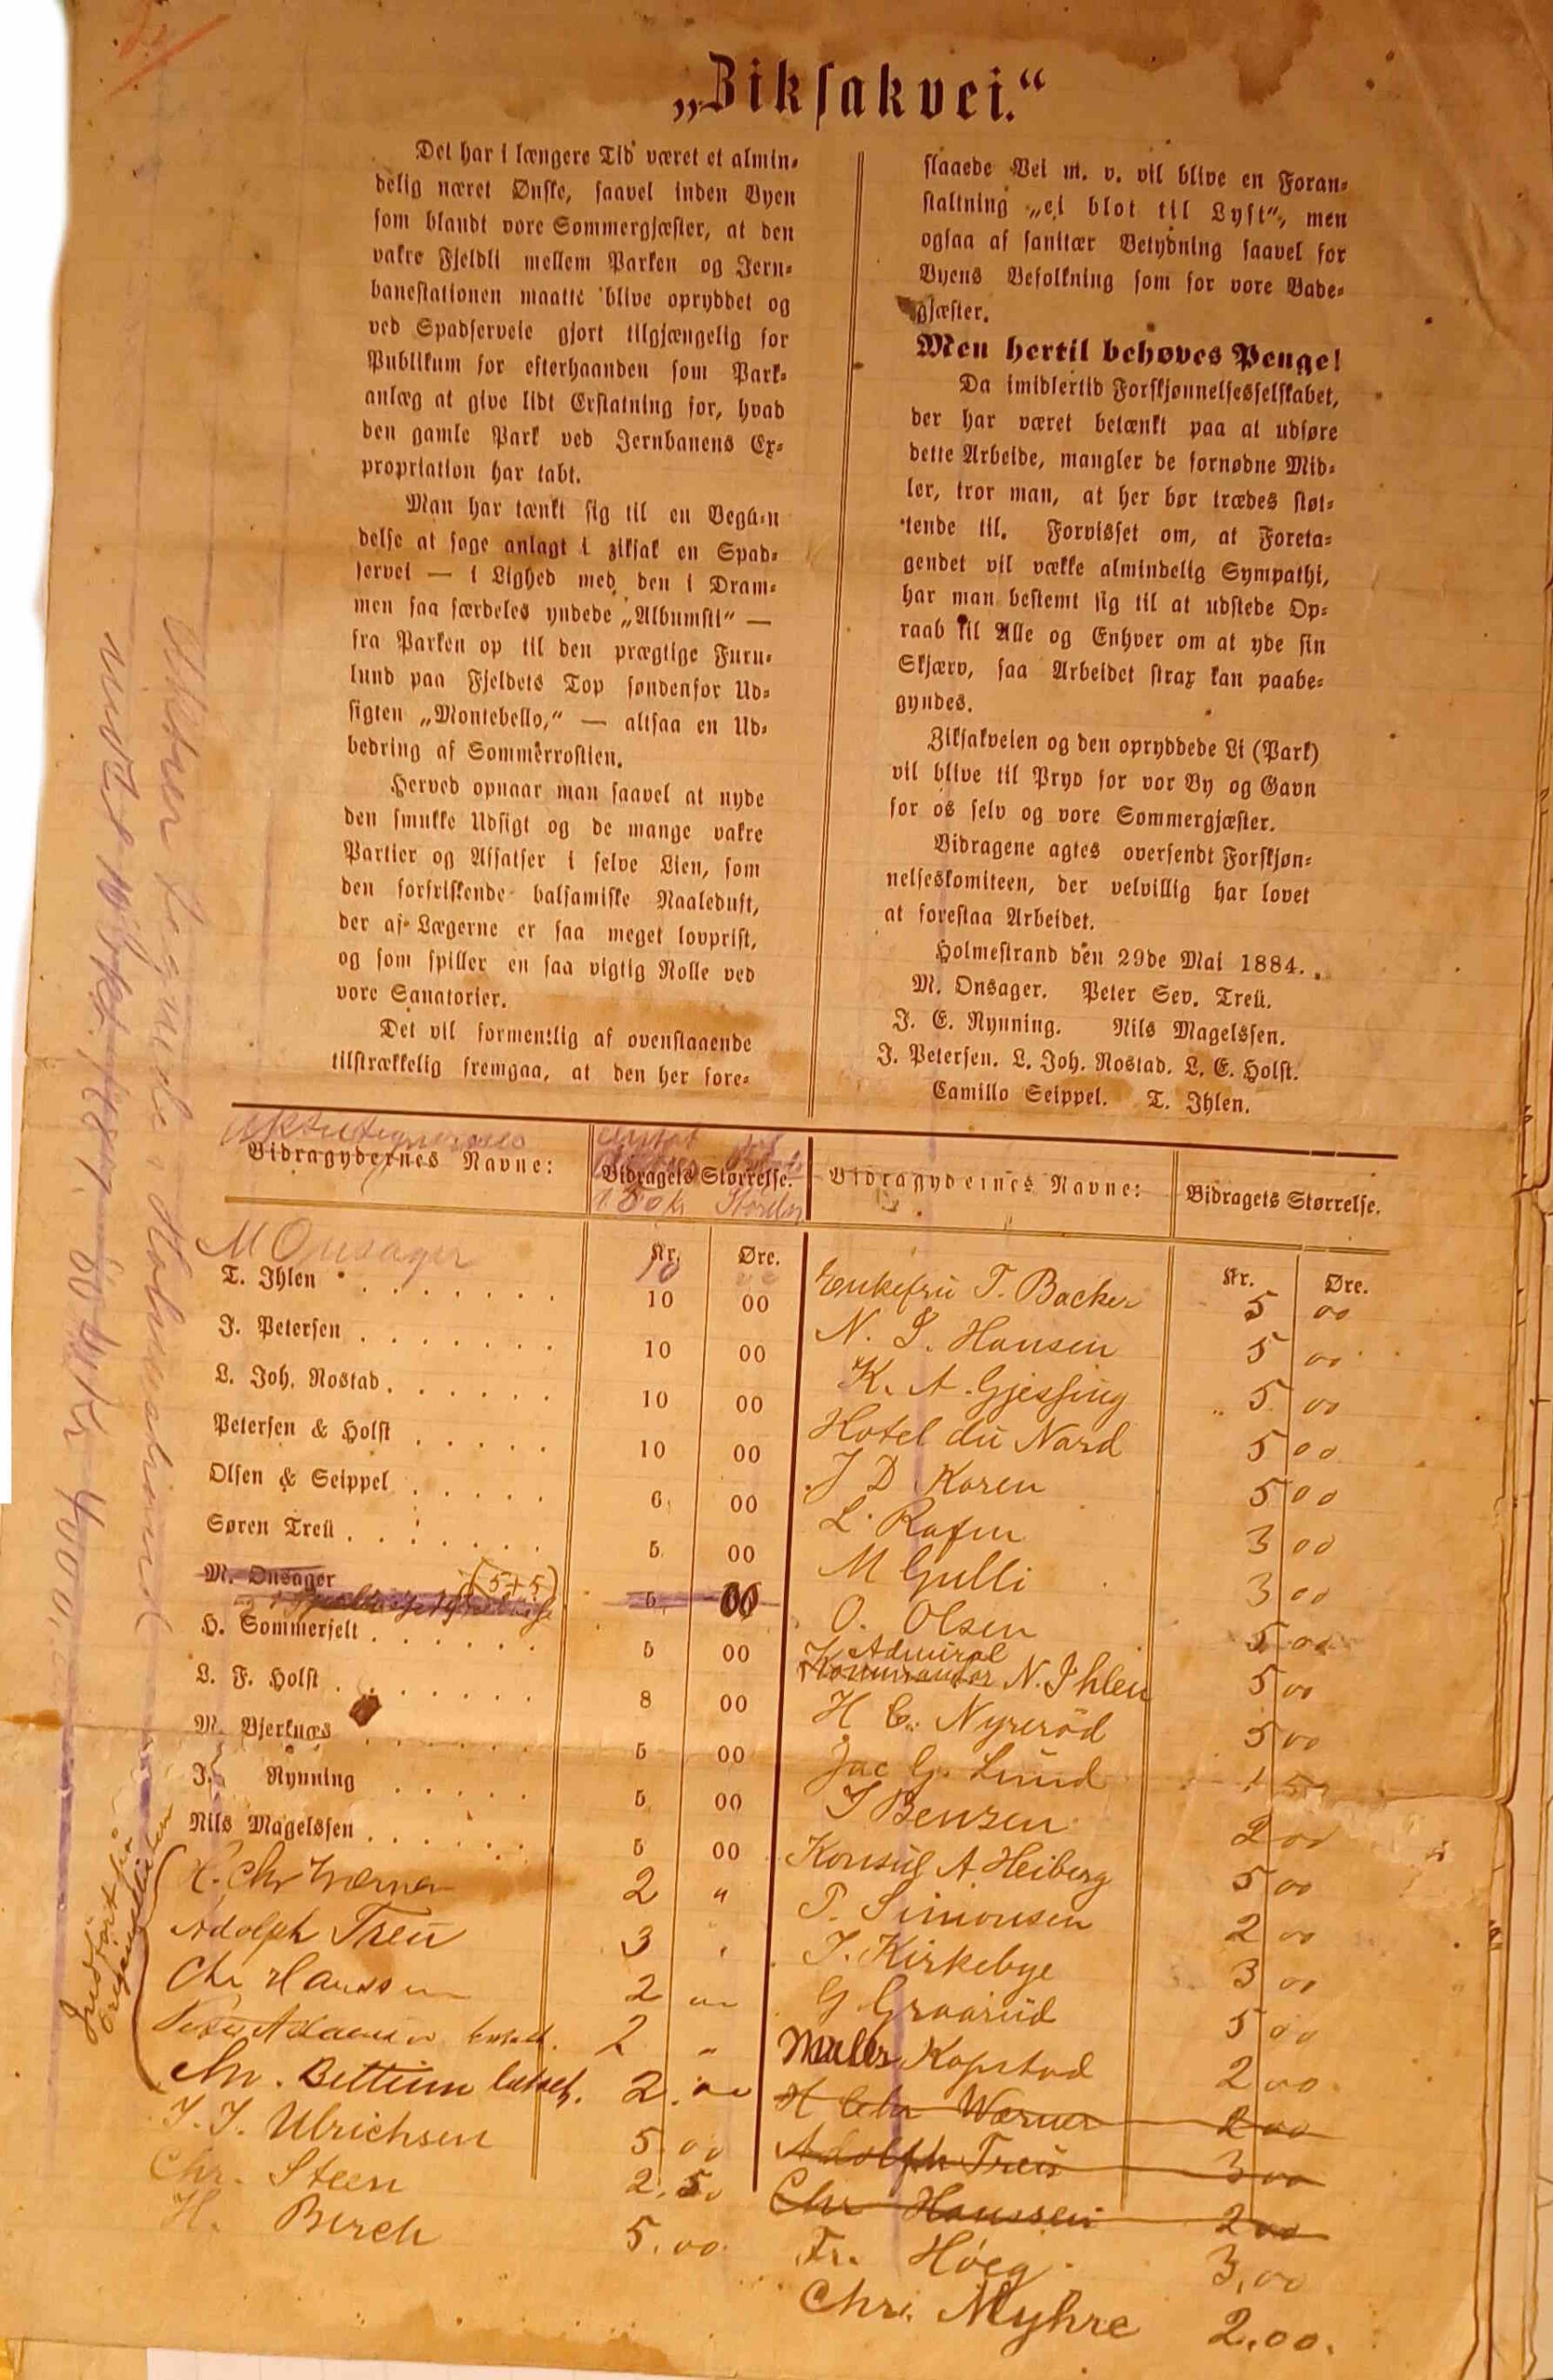 „Ziksakvei.“
Det har i længere Tid været et almin-
delig næret Ønske, saavel inden Byen
som blandt vore Sommergjæster, at den
vakre Fjeldli mellem Parken og Jern-
banestationen maatte blive opryddet og
ved Spadserveie gjort tilgjængelig for
Publikum for efterhaanden som Park-
anlæg at give lidt Erstatning for, hvad
den gamle Park ved Jernbanens Ex-
propriation har tabt.
Man har tænkt sig til en Begyn
delse at søge anlagt i ziksak en Spad-
servei — i Lighed med den i Dram-
men saa særdeles yndede „Albumsti“ —
fra Parken op til den prægtige Furu-
lund paa Fjeldets Top søndenfor Ud-
sigten „Montebello,“ — altsaa en Ud-
bedring af Sommerrostien.
Herved opnaar man saavel at nyde
den smukke Udsigt og de mange vakre
Partier og Afsatser i selve Lien, som
den forfriskende balsamiske Naaleduft,
der af Lægerne er saa meget lovprist,
og som spiller en saa vigtig Rolle ved
vore Sanatorier.
Det vil formentlig af ovenstaaende
tilstrækkelig fremgaa, at den her fore-
slaaede Vei m. v. vil blive en Foran-
staltning „ei blot til Lyst“, men
ogsaa af sanitær Betydning saavel for
Byens Befolkning som for vore Bade-
gjæster.
Men hertil behøves Penge!
Da imidlertid Forskjønnelsesselskabet,
der har været betænkt paa at udføre
dette Arbeide, mangler de fornødne Mid-
ler, tror man, at her bør trædes støt-
tende til. Forvisset om, at Foreta-
gendet vil vække almindelig Sympathi,
har man bestemt sig til at udstede Op-
raab til Alle og Enhver om at yde sin
Skjærv, saa Arbeidet strax kan paabe-
gyndes.
Ziksakveien og den opryddede Li (Park)
vil blive til Pryd for vor By og Gavn
for os selv og vore Sommergjæster.
Bidragene agtes oversendt Forskjøn-
nelseskomiteen, der velvillig har lovet
at forestaa Arbeidet.
Holmestrand den 29de Mai 1884.
M. Onsager. Peter Sev. Treü.
J. E. Nynning. Nils Magelssen.
J. Petersen. L. Joh. Rostad. L. E. Holst.
Camillo Seippel. T. Ihlen.
Bidragydernes Navne: Bidragets Størrelse.
Kr. Øre.
M Onsager 10
T. Ihlen 10 00
J. Petersen 10 00
L. Joh. Rostad 10 00
Petersen & Holst 10 00
Olsen & Seippel 6 00
Søren Treü 5 00
M. Onsager (5+5) 5 00
H. Sommerfelt 5 00
L. F. Holst 8 00
M. Bjerknæs 5 00
J. Nynning 5 00
Nils Magelssen 5 00
H. Chr Wærner 2 "
Adolph Treü 3 "
Chr Hanssen 2 00
2 "
Chr. Bettum 2.00
J. J. Ulrichsen 5.00
Chr. Steen 2.50
H. Birch 5.00
Bidragydernes Navne: Bidragets Størrelse.
Kr. Øre.
Enkefrü T. Backer 5 00
N. S. Hansen 5 00
K. A. Gjessing 5 00
Hotel dü Nord 5 00
J D Koren 5 00
L. Rafen 3 00
M Gulli 3 00
O. Olsen 5 00
Admiral
Kommandør N. Ihlen 5 00
H C. Nyrerød 5 00
Jac G. Lund 1 50
J Benzen 2 00
Konsül A. Heiberg 5 00
P. Simonsen 2 00
J. Kirkebye 3 00
G Graarüd 5 00
Møller Kopstad 2 00
H Chr Wærner 2 00
Adolph Treü 3 00
Chr Hanssen 2 00
Fr. Høeg 3,00
Chr. Myhre 2.00.